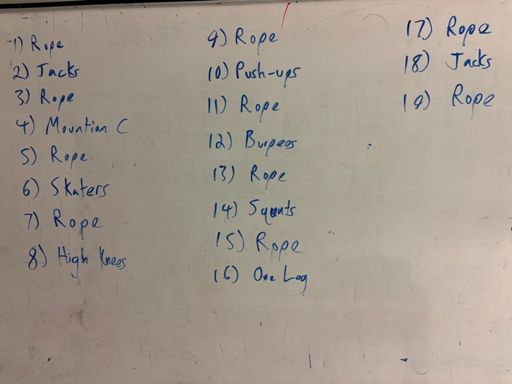 1) Rope
2) Jacks
3) Rope
4) Mountian C
5) Rope
6) Skaters
7) Rope
8) High Knees
9) Rope
10) Push-ups
11) Rope
12) Burpees
13) Rope
14) Squats
15) Rope
16) One Leg
17) Rope
18) Jacks
19) Rope